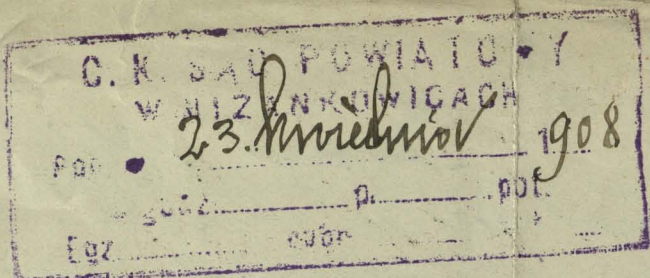 C. K. SĄD POWIATOWY
W NIZANKOWICACH
23. kwietnia 1908
godz. p. poł.
Egz.